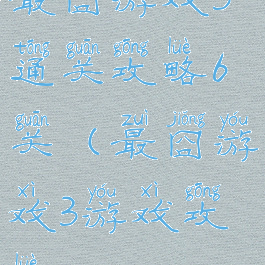 最囧游戏3
tōng guān gōng lüè
通关攻略6
guān zuì jiǒng yóu
关(最囧游
xì yóu xì gōng
戏3游戏攻
lüè